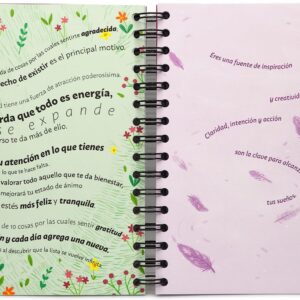 da de cosas por las cuales sentirte agradecida.
echo de existir es el principal motivo.
d tiene una fuerza de atracción poderosísima.
rda que todo es energía,
se expande
rso te da más de ello.
u atención en lo que tienes
lo que se hace falta.
valorar todo aquello que te da bienestar,
mejorará tu estado de ánimo
estés más feliz y tranquila.
de 10 cosas por las cuales sentir gratitud
ón y cada día agrega una nueva.
al descubrir que la lista se vuelve
Eres una fuente de inspiración
y creativid
Claridad, intención y acción
son la clave para alcanza
tus sueños.